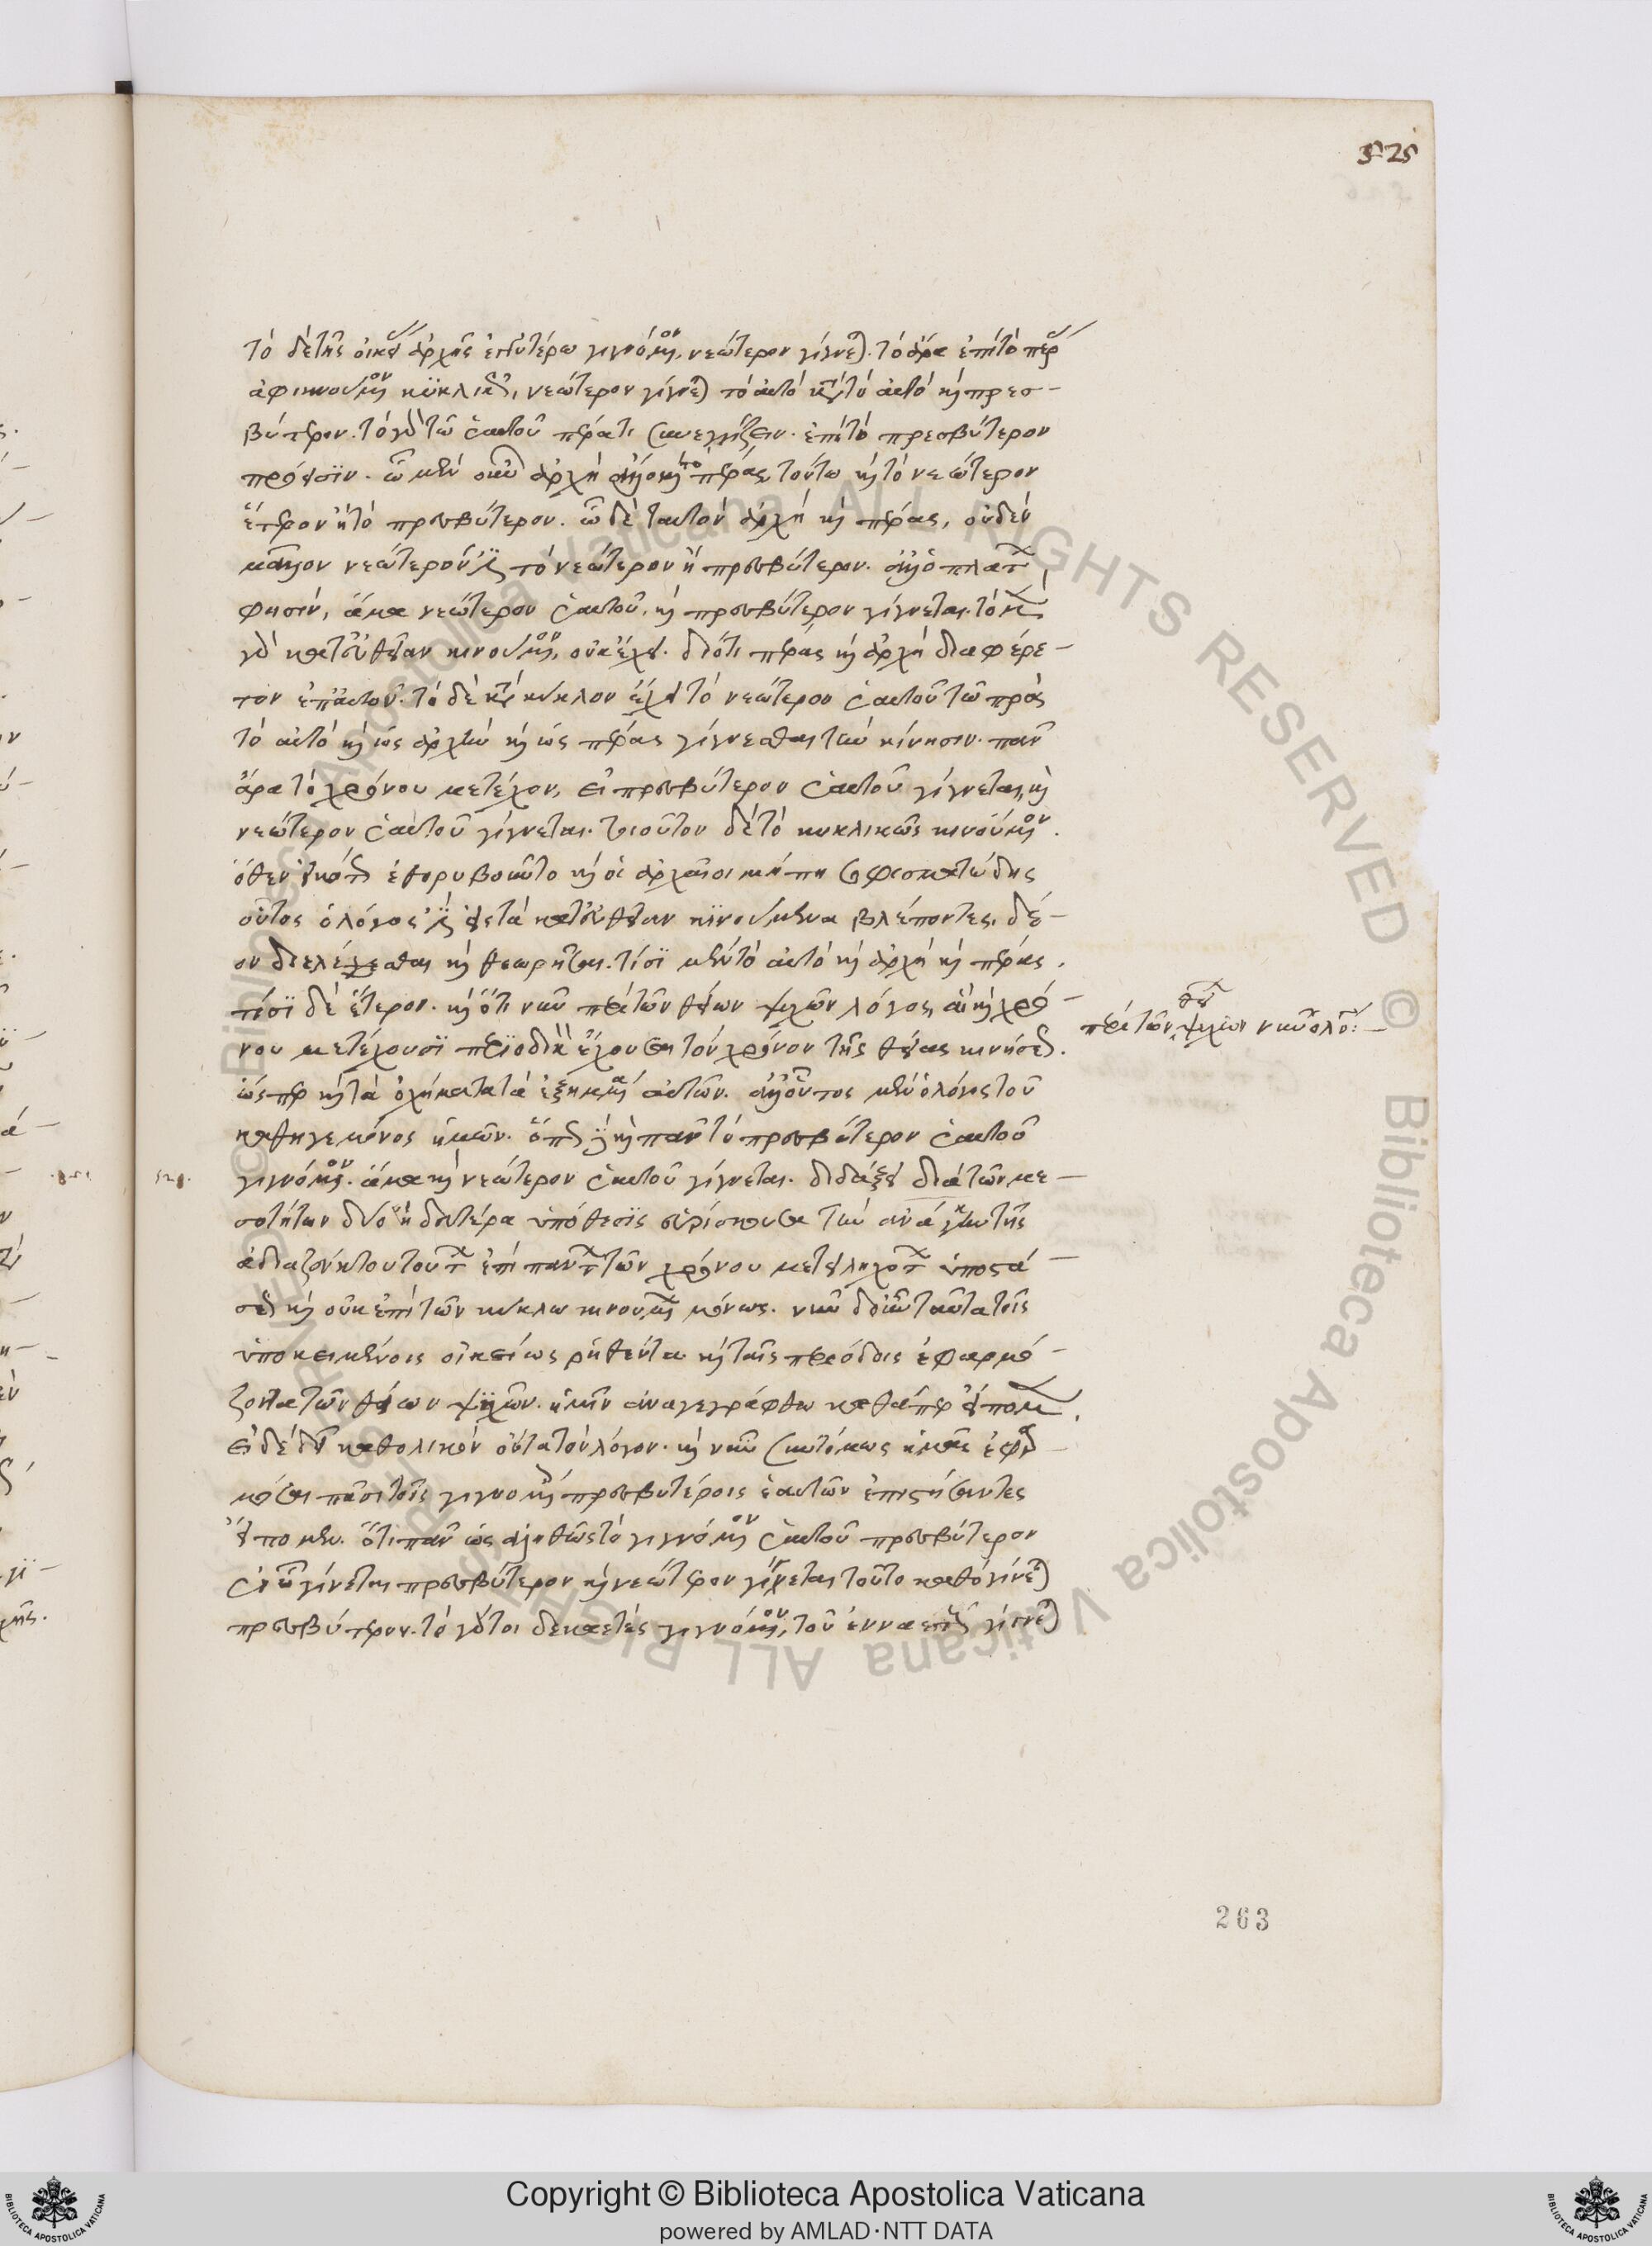 525
τὸ δὲ τῆς οἰκείας ἀρχῆς ἐγγυτέρω γιγνόμενον, νεώτερον γίγνεται. τὸ ἄρα ἐπὶ τὸ πέρας
ἀφικνούμενον κυκλικῶς, νεώτερον γίγνεται τὸ αὐτὸ κατὰ τὸ αὐτὸ καὶ πρεσ-
βύτερον. τὸ γὰρ τῷ ἑαυτοῦ πέρατι συνεγγίζειν. ἐπὶ τὸ πρεσβύτερον
πρόεισιν. ᾧ μὲν οὖν ἀρχὴ ἄλλο καὶ τὸ πέρας, τούτῳ καὶ τὸ νεώτερον
ἕτερον ἢ τὸ πρεσβύτερον. ᾧ δὲ ταυτὸν ἀρχὴ καὶ πέρας, οὐδὲν
μᾶλλον νεώτερόν ἐστι τὸ νεώτερον ἢ πρεσβύτερον. ἀλλ' ὁ πλάτων
φησίν, ἅμα νεώτερον ἑαυτοῦ, καὶ πρεσβύτερον γίγνεται. τὸ μὲν
γὰρ κατ' εὐθεῖαν κινούμενον, οὐκ ἔχει. διότι πέρας καὶ ἀρχὴ διαφέρε-
τον ἐπ' αὐτοῦ. τὸ δὲ κατὰ κύκλον ἔχει τὸ νεώτερον ἑαυτοῦ τῷ πρὸς
τὸ αὐτὸ καὶ ὡς ἀρχὴν καὶ ὡς πέρας γίγνεσθαι τὴν κίνησιν. πᾶν
ἄρα τὸ χρόνου μετέχον, εἰ πρεσβύτερον ἑαυτοῦ γίγνεται, καὶ
νεώτερον ἑαυτοῦ γίγνεται. τοιοῦτον δὲ τὸ κυκλικῶς κινούμενον.
ὅθεν εἰκότως ἐθορυβοῦντο καὶ οἱ ἀρχαῖοι μή πη σοφισματώδης
οὗτος ὁ λόγος ἐστὶν εἰς τὰ κατ' εὐθεῖαν κινούμενα βλέποντες, δέ-
ον διελέσθαι καὶ θεωρῆσαι. τίσι μὲν τὸ αὐτὸ καὶ ἀρχὴ καὶ πέρας,
τίσι δὲ ἕτερον. καὶ ὅτι νῦν περὶ τῶν θείων ψυχῶν λόγος, αἳ καὶ χρό-
νου μετέχουσι περιοδικὸν ἔχουσαι τὸν χρόνον τῆς θείας κινήσεως.
περὶ τῶν θείων ψυχῶν νῦν ὁ λόγος:—
ὥσπερ καὶ τὰ ὀχήματα τὰ ἐξημμένα αὐτῶν. ἀλλ' οὗτος μὲν ὁ λόγος τοῦ
καθηγεμόνος ἡμῶν. ὅπως δὲ καὶ πᾶν τὸ πρεσβύτερον ἑαυτοῦ
γιγνόμενον. ἅμα καὶ νεώτερον ἑαυτοῦ γίγνεται. διδάξει διὰ τῶν με-
σοτήτων δύο ἡ δευτέρα ὑπόθεσις εὑρίσκουσα τὴν ἀνάγκην τῆς
ἀδιαζεύκτου τούτων ἐπὶ πάντων τῶν χρόνου μετειληχότων ὑποστά-
σεως καὶ οὐκ ἐπὶ τῶν κύκλῳ κινουμένων μόνως. νῦν δ' οὖν ταῦτα τοῖς
ὑποκειμένοις οἰκείως ῥηθέντα καὶ ταῖς περιόδοις ἐφαρμό-
ζοντα τῶν θείων ψυχῶν. ἡμῖν ἀναγεγράφθω καθάπερ εἴπομεν.
εἰ δὲ δεῖ καθολικὸν ὄντα τὸν λόγον. καὶ νῦν συντόμως ἡμᾶς ἐφαρ-
μόσαι πᾶσι τοῖς γιγνομένοις πρεσβυτέροις ἑαυτῶν ἐπιστήσαντες
εἴπομεν. ὅτι πᾶν ὡς ἀληθῶς τὸ γιγνόμενον ἑαυτοῦ πρεσβύτερον
ἐν ᾧ γίνεται πρεσβύτερον καὶ νεώτερον γίγνεται τοῦτο καθὸ γίνεται
πρεσβύτερον. τὸ γάρ τοι δεκαετὲς γιγνόμενον, τοῦ ἐνναετοῦς γίγνεται
263
Copyright © Biblioteca Apostolica Vaticana
powered by AMLAD·NTT DATA